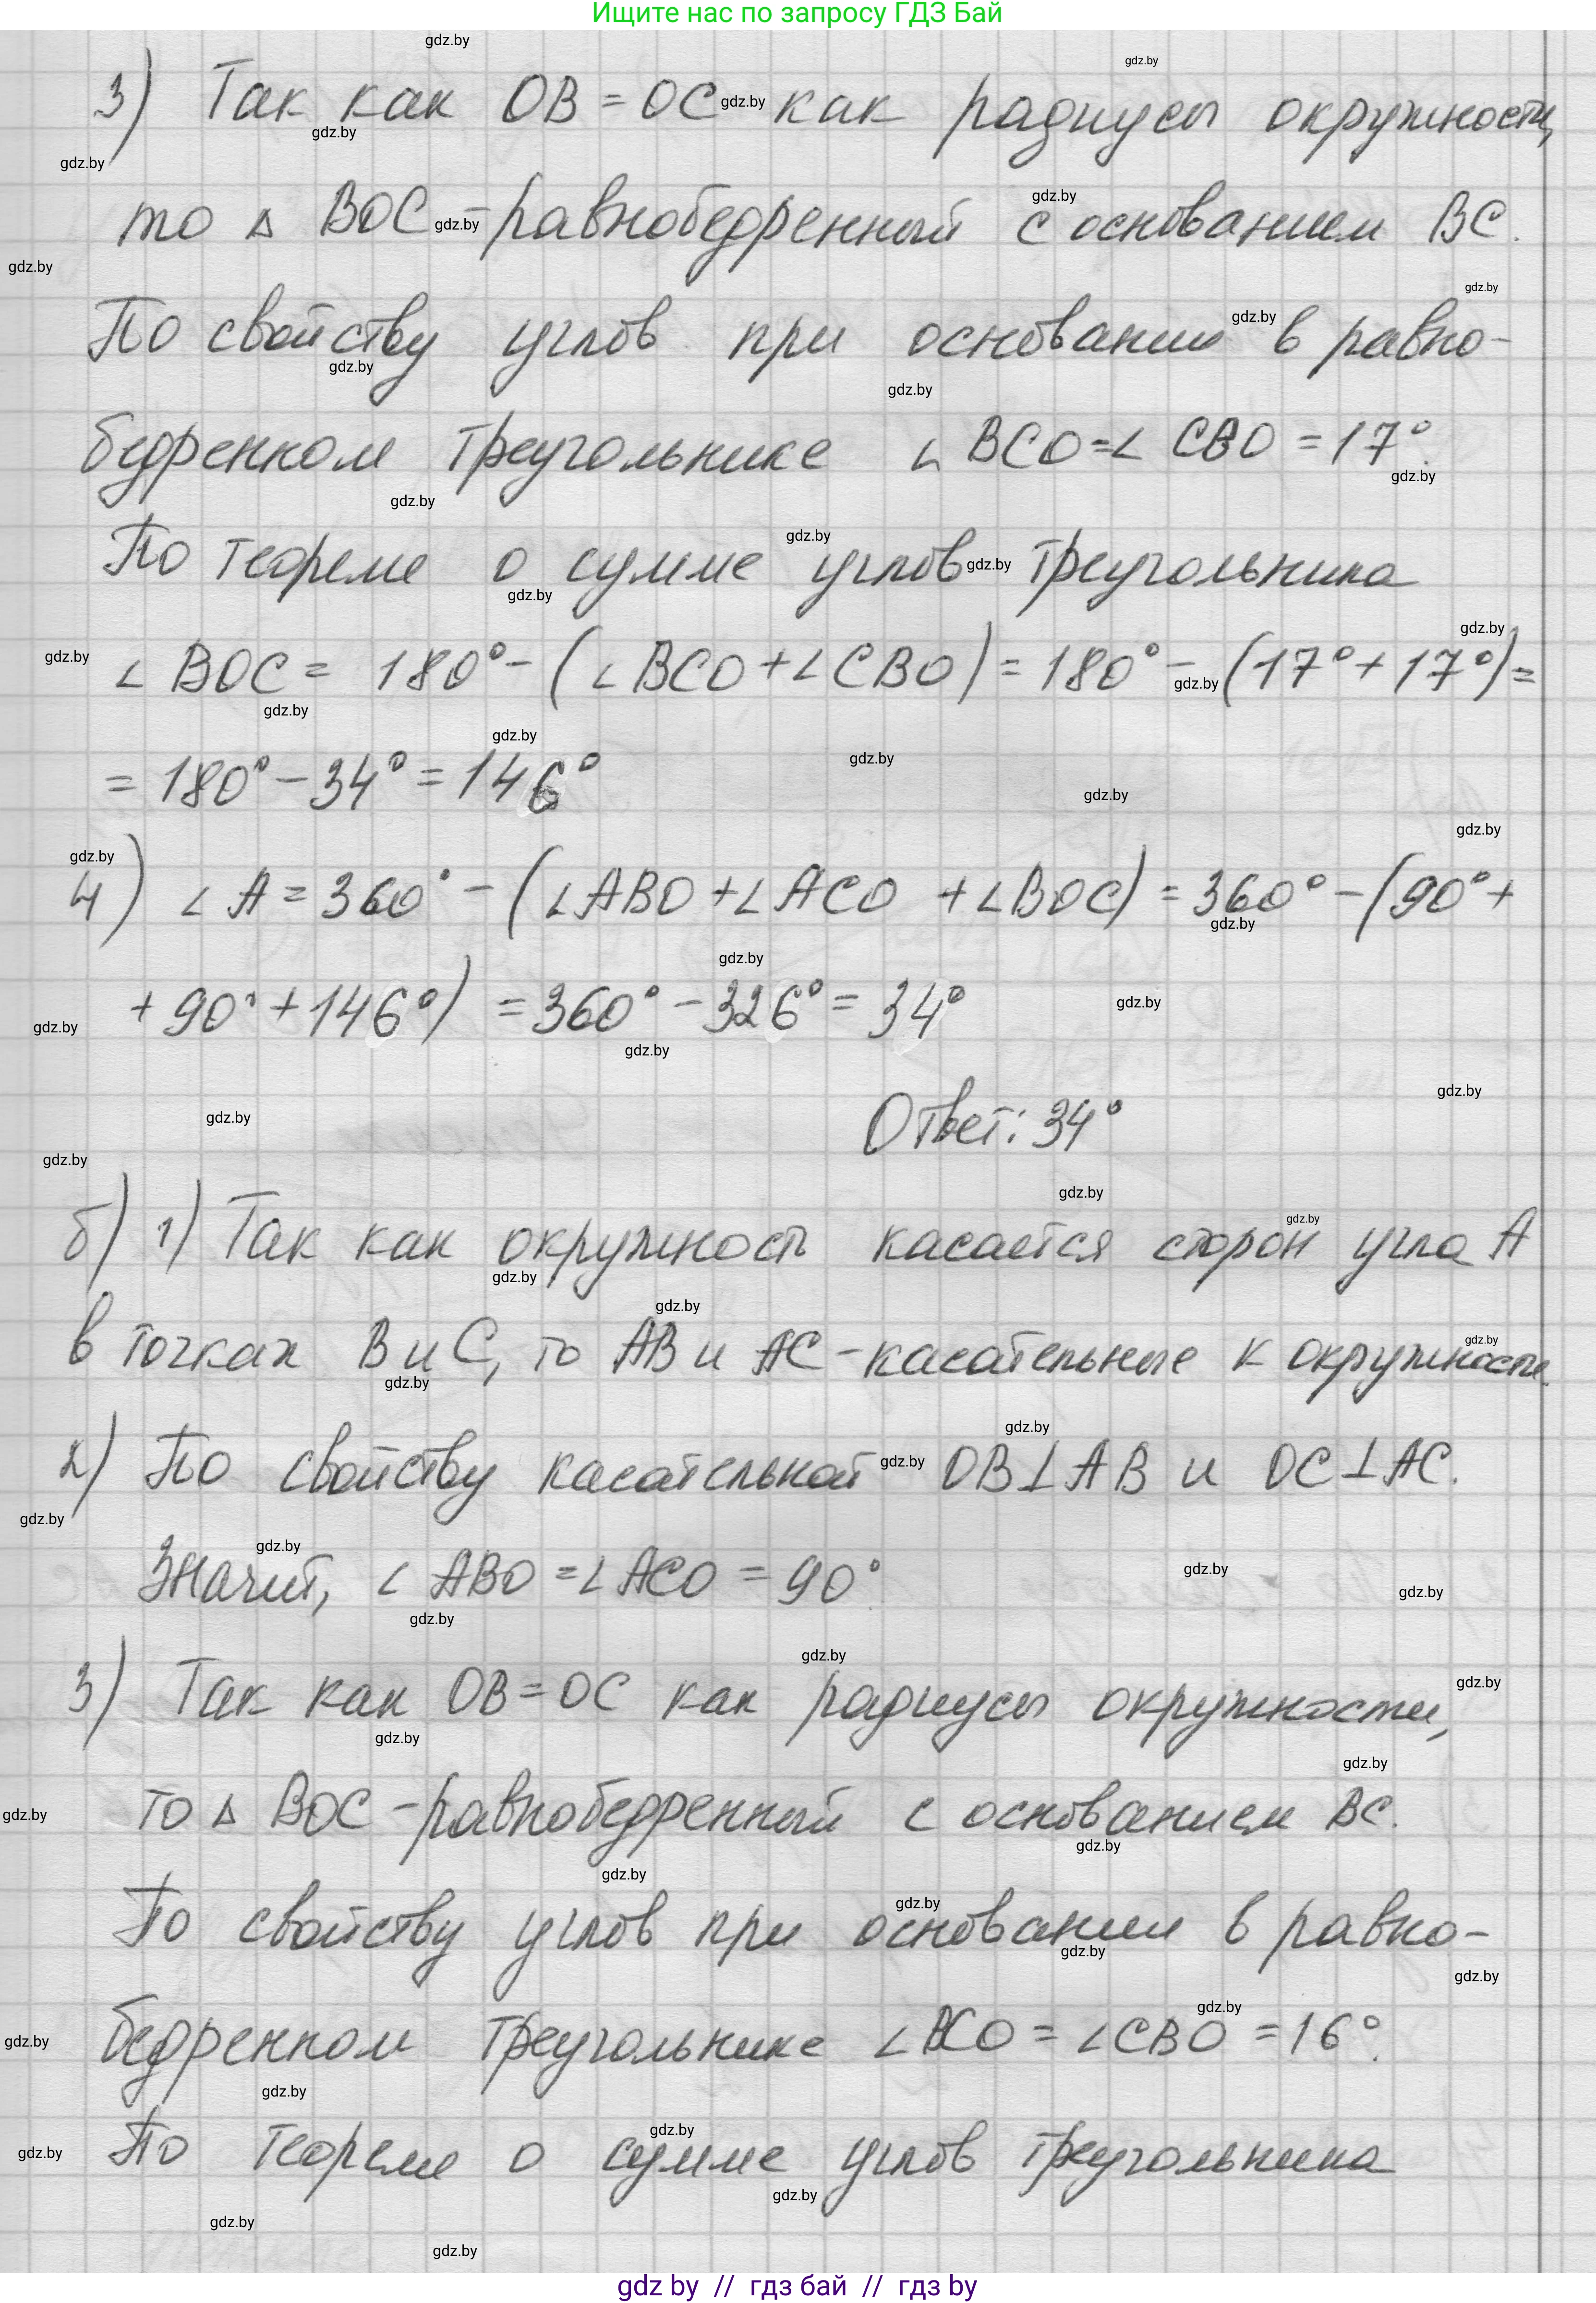 Ищите нас по запросу ГДЗ Бай
3) Так как OB = OC как радиусы окружности,
то △ BOC - равнобедренный с основанием BC.
По свойству углов при основании в равно-
бедренном треугольнике ∠ BCO = ∠ CBO = 17°.
По теореме о сумме углов треугольника
∠ BOC = 180° - (∠ BCO + ∠ CBO) = 180° - (17° + 17°) =
= 180° - 34° = 146°
4) ∠ A = 360° - (∠ ABO + ∠ ACO + ∠ BOC) = 360° - (90° +
+ 90° + 146°) = 360° - 326° = 34°
Ответ: 34°
б) 1) Так как окружность касается сторон угла A
в точках B и C, то AB и AC - касательные к окружности.
2) По свойству касательной OB ⊥ AB и OC ⊥ AC.
Значит, ∠ ABO = ∠ ACO = 90°.
3) Так как OB = OC как радиусы окружности,
то △ BOC - равнобедренный с основанием BC.
По свойству углов при основании в равно-
бедренном треугольнике ∠ BCO = ∠ CBO = 16°.
По теореме о сумме углов треугольника
gdz by // гдз бай // гдз by